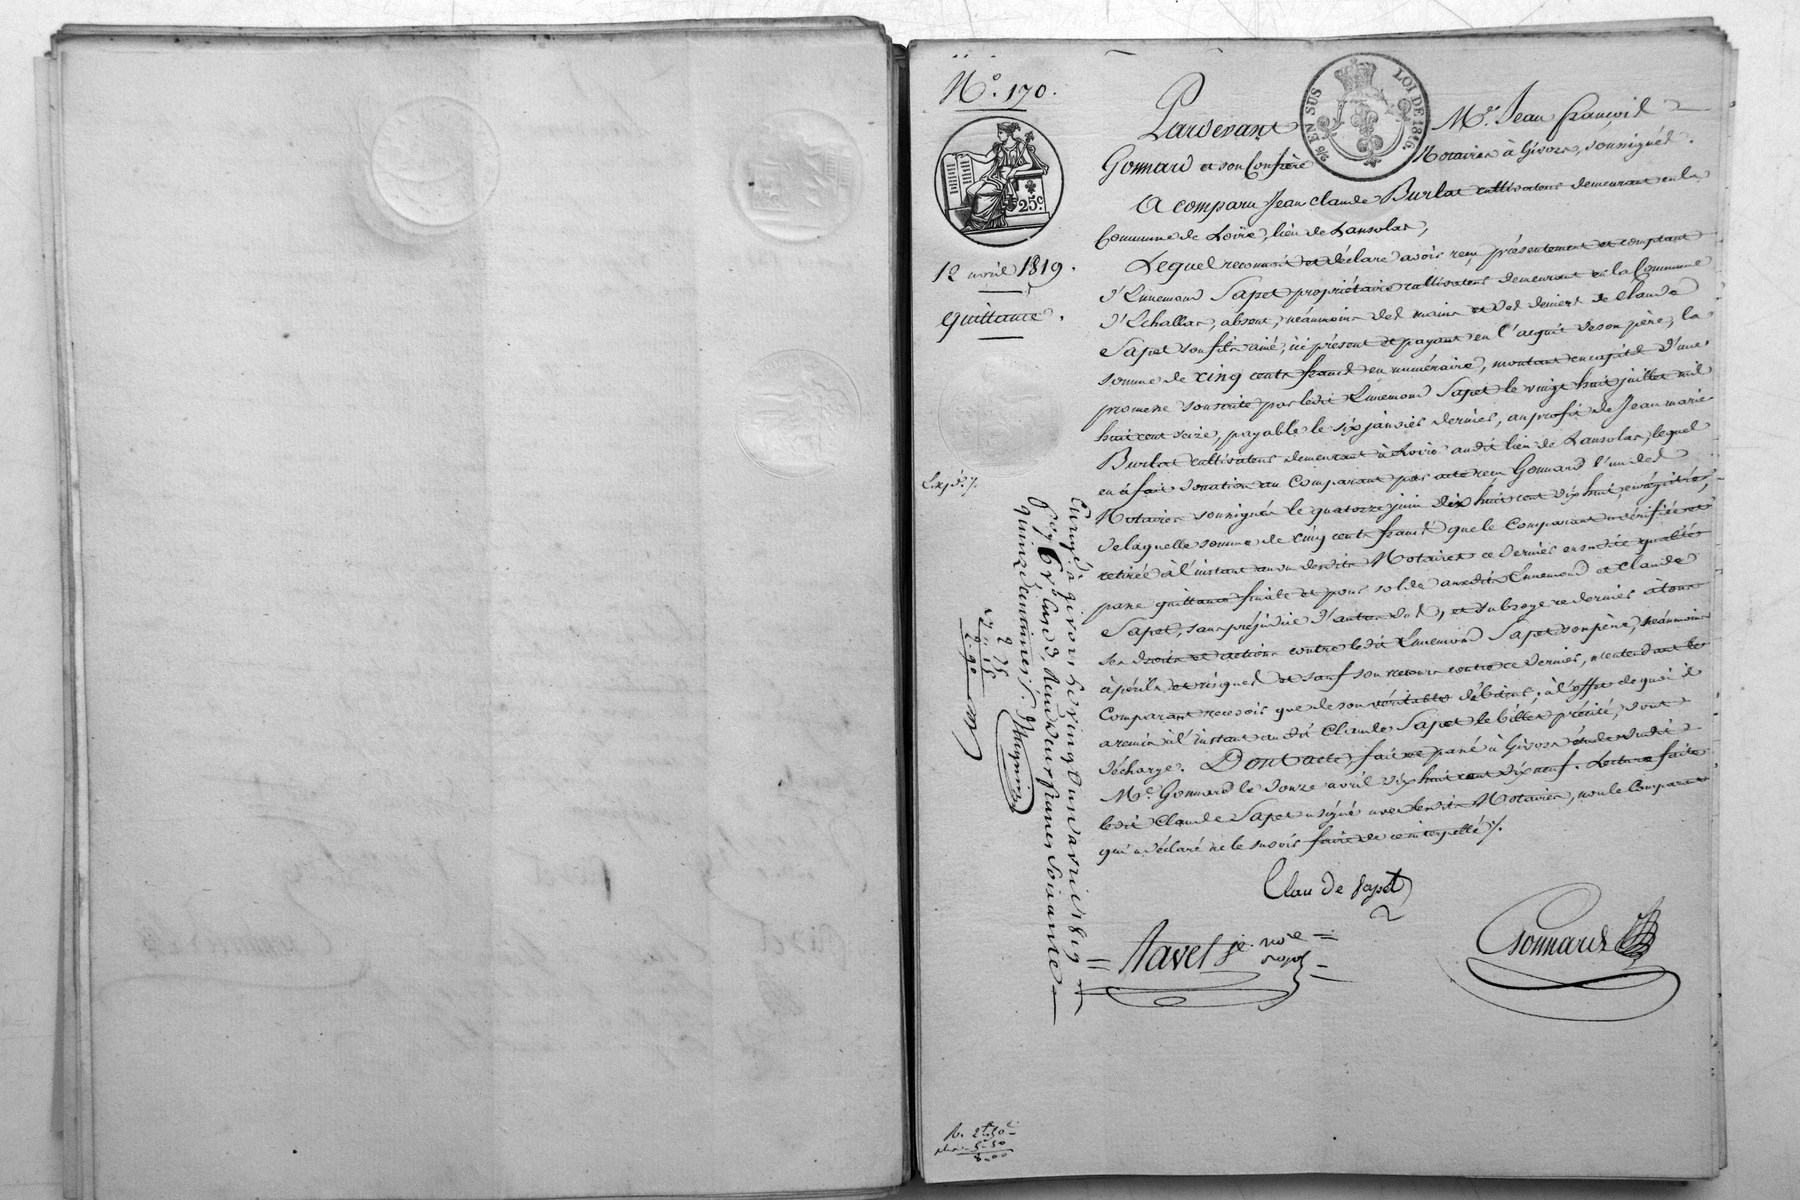 N.º 170.
25 c.
12 avril 1819.
quittance.
EN SUS
LOI DE 1816.
Pardevant Mre. Jean françois
Gonnard et son Confrère Notaires à Givors, soussignés.
A comparu Jean claude Burlat cultivateur demeurant en la
Commune de Loire, lieu de Lansolas,
Lequel reconnait et déclare avoir reçu présentement et comptant
d'Ennemond Sapet propriétaire cultivateur demeurant en la Commune
d'Echallas, absent, néanmoins des mains et des deniers de Claude
Sapet son fils ainé, ici présent et payant en l'acquit de son père, la
somme de cinq cents francs en numéraire, montant en capital d'une
promesse souscrite par ledit Ennemond Sapet le vingt huit juillet mil
huit cent seize, payable le six janvier dernier, au profit de Jean marie
Burlat cultivateur demeurant à Loire audit lieu de Lansolas, lequel
en a fait donation au Comparant par acte reçu Gonnard l'un des
Notaires soussignés le quatorze juin dix huit cent dix huit, enregistré,
de laquelle somme de cinq cents francs que le Comparant a vérifiée et
retirée à l'instant au vu desdits Notaires ce dernier en sadite qualité
passe quittance finale et pour solde auxdits Ennemond et Claude
Sapet, sans préjudice d'autres dus, et subroge ce dernier à tous
ses droits et actions contre ledit Ennemond Sapet son père, néanmoins
à périls et risques et sauf son recours contre ce dernier, n'entendant le
Comparant recevoir que de son véritable débiteur; à l'effet de quoi il
a remis à l'instant audit Claude Sapet le billet précité, dont
décharge. Dont acte, fait et passé à Givors étude dudit
Mre. Gonnard le douze avril dix huit cent dix neuf. Lecture faite
ledit Claude Sapet a signé avec lesdits Notaires, non le Comparant
qui a déclaré ne le savoir faire de ce interpellé ./.
Clau De Sapet
Navet je. nore
royal
Gonnard
Exp.d. ./.
Enregé. à givors le vingt un avril 1819
quinze centimes ./.
2 75